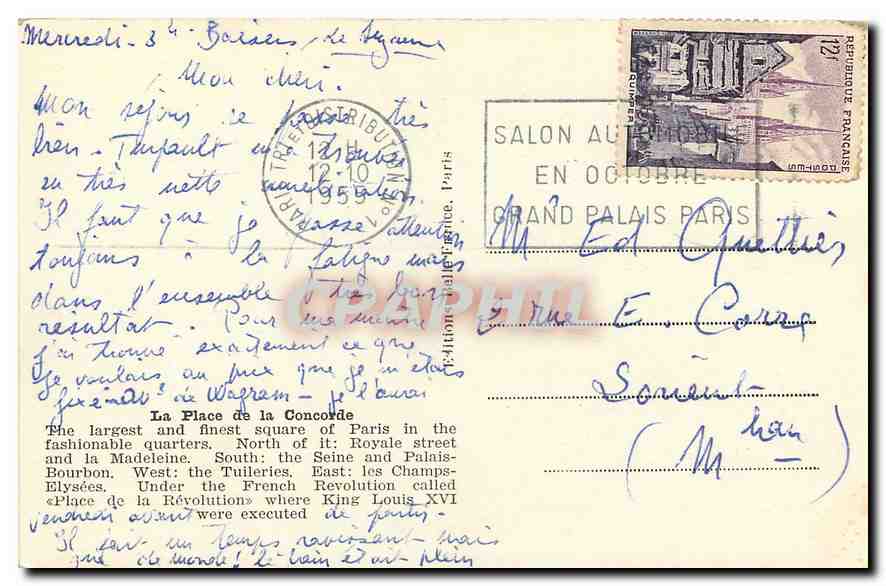 Mercredi - 3h - Baisers, de Suzanne
Mon chéri.
Mon séjour se passe très
bien - Thépault m'a trouvée
en très nette
Il faut que je passe attention
toujours à la fatigue mais
dans l'ensemble très bon
résultat. Pour ma montre
j'ai trouvé exactement ce que
je voulais au prix que je m'étais
fixé Av. de Wagram - je l'aurai
La Place de la Concorde
The largest and finest square of Paris in the
fashionable quarters. North of it: Royale street
and la Madeleine. South: the Seine and Palais-
Bourbon. West: the Tuileries. East: les Champs-
Elysées. Under the French Revolution called
«Place de la Révolution» where King Louis XVI
were executed
vendredi avant de partir -
Il fait un temps ravissant mais
que de monde! le train était plein
PARIS TRI ET DISTRIBUTION N°1
12 H
12-10
1955
Editions Belle France, Paris
SALON AUTOMOBILE
EN OCTOBRE
GRAND PALAIS PARIS
RÉPUBLIQUE FRANÇAISE
12f
POSTES
QUIMPER
CPAPHIL
Mr Ed
rue E. Corre
Lorient
(Mhan)